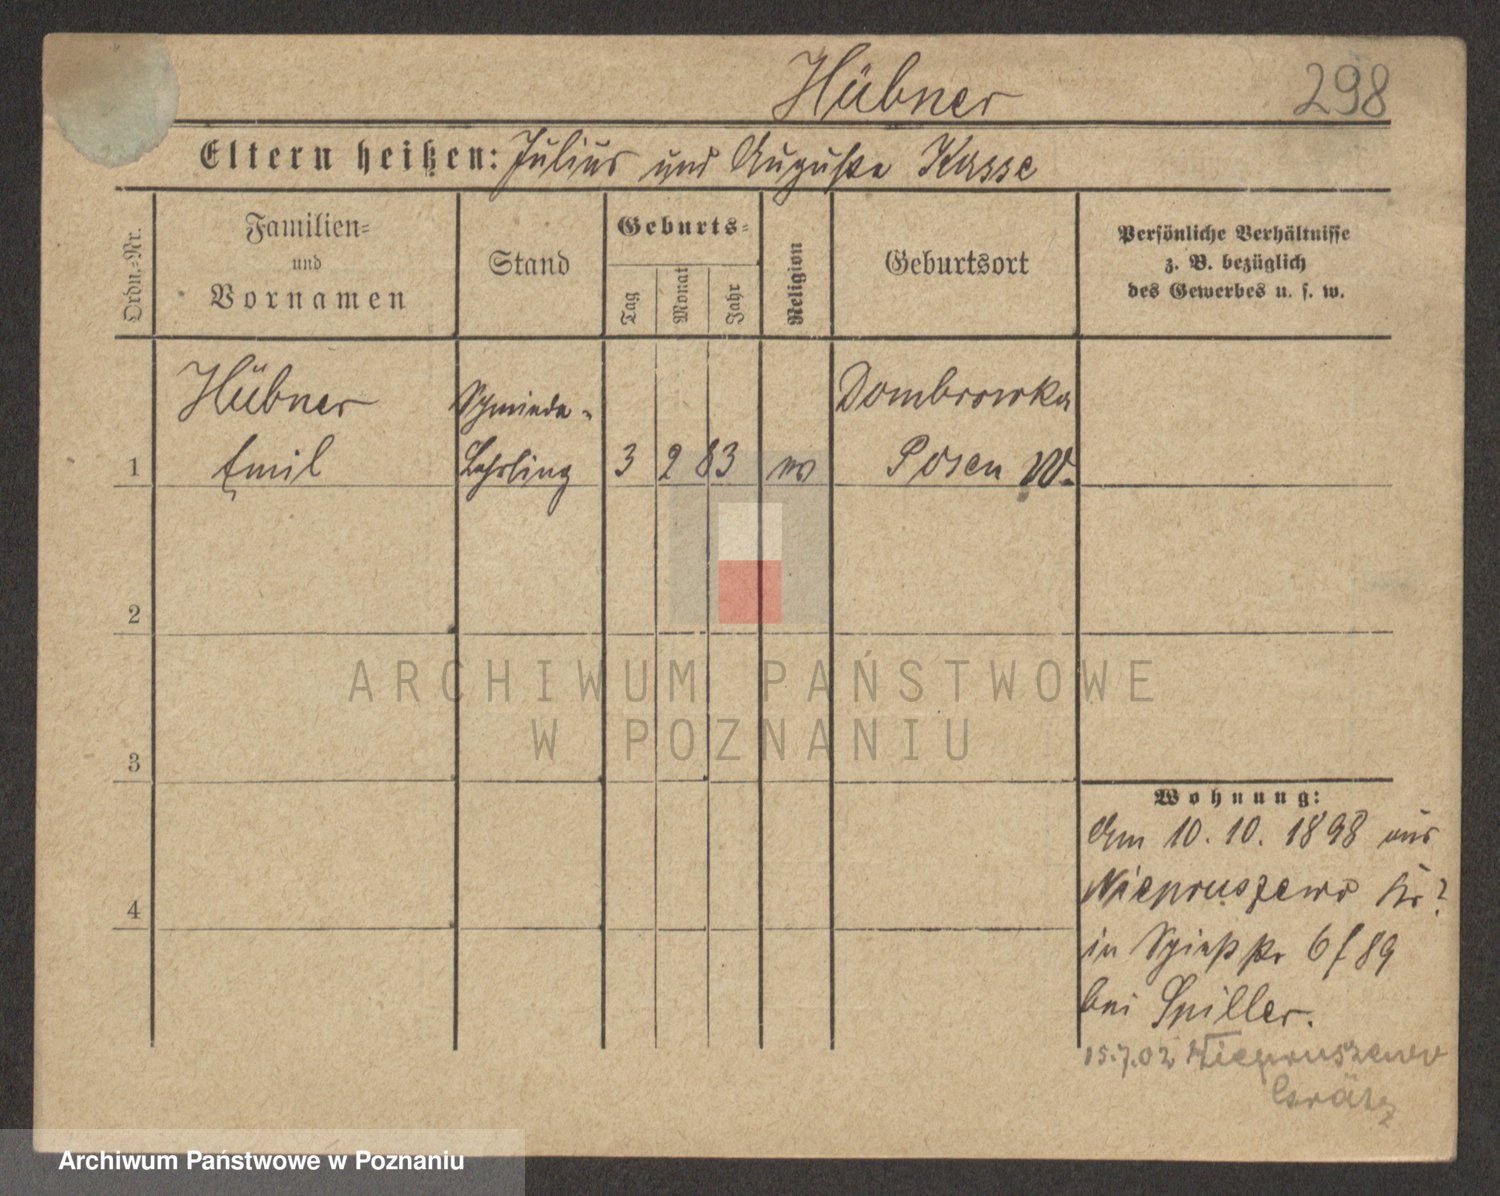 Hübner
298
Eltern heißen: Julius und Auguste Kasse
Ordn.-Nr.
Familien-
und
Vornamen
Stand
Geburts-
Tag
Monat
Jahr
Religion
Geburtsort
Persönliche Verhältnisse
z. B. bezüglich
des Gewerbes u. s. w.
Hübner
Schmiede-
Dombrowka
1 Emil Lehrling 3 2 83 ev Posen W.
2
ARCHIWUM PAŃSTWOWE
W POZNANIU
3
Wohnung:
Am 10.10.1898 aus
Niepruszewo Kr?
4
in 6/89
bei Spiller.
15.7.02 Niepruszewo
Grätz
Archiwum Państwowe w Poznaniu